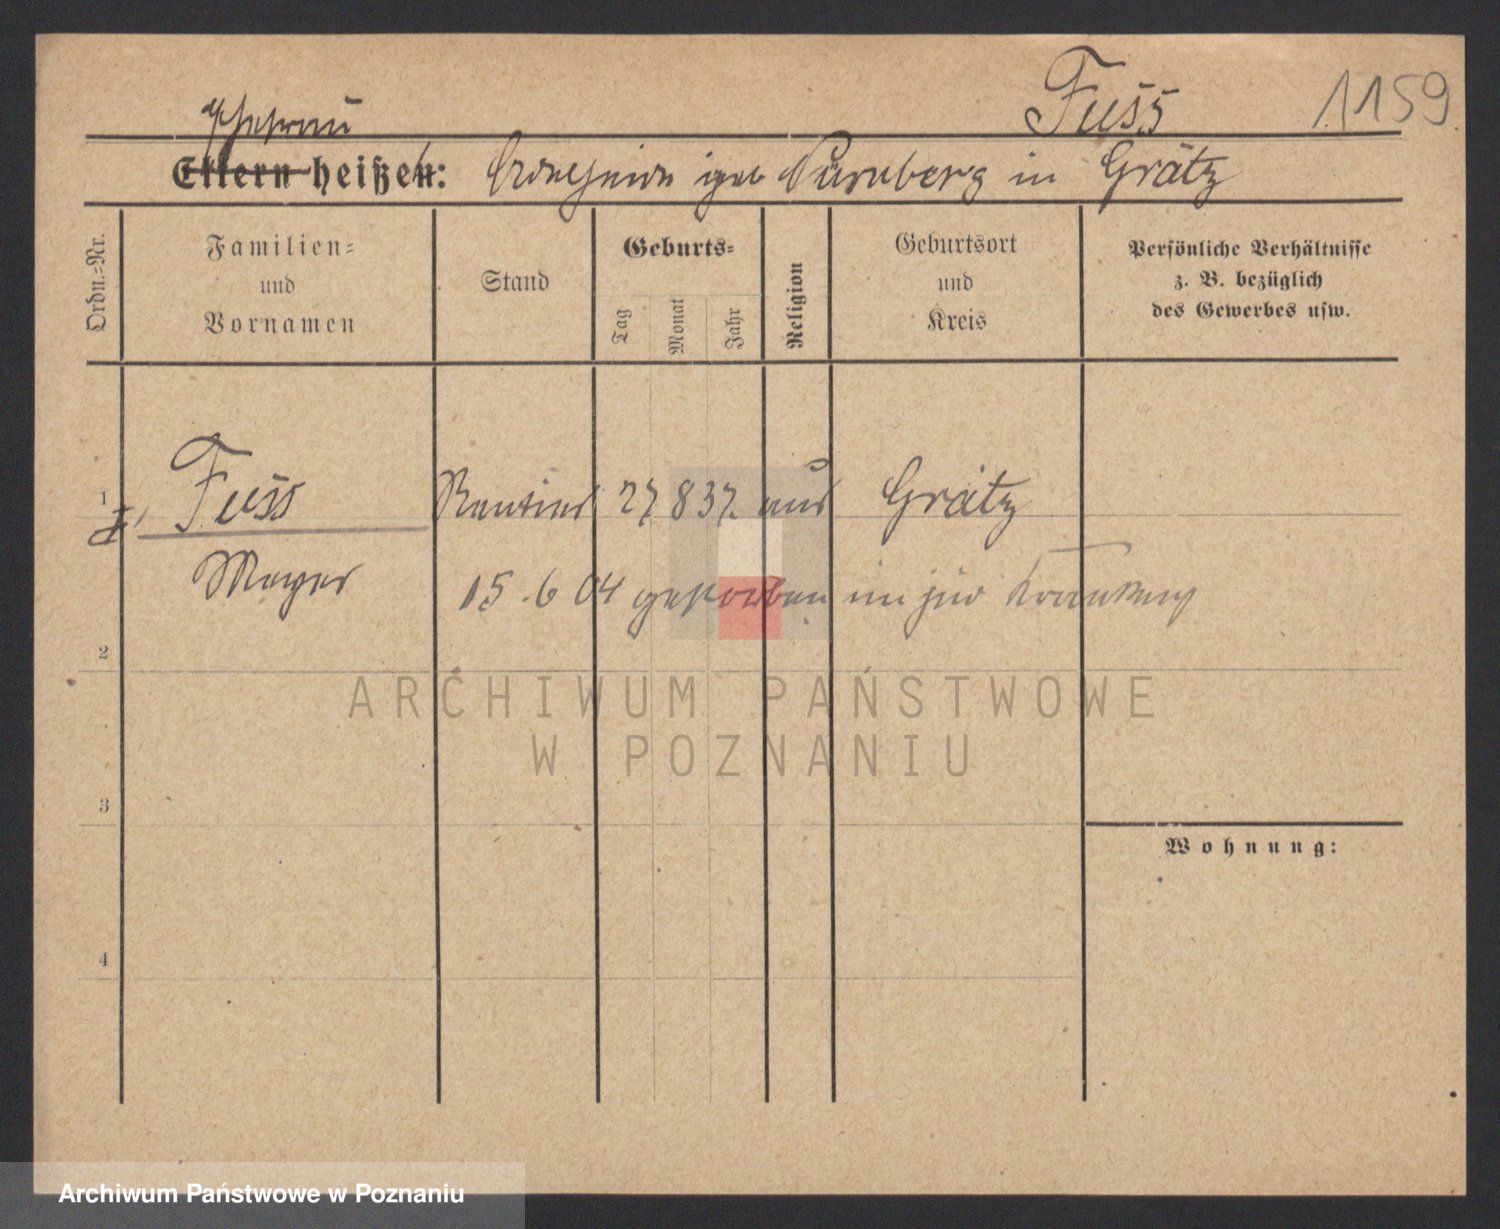 Fuss 1159
Ehefrau
Eltern heißen: geb Nürnberg in Grätz
Ordn.=Nr.
Familien=
und
Vornamen
Stand
Geburts=
Tag
Monat
Jahr
Religion
Geburtsort
und
Kreis
Persönliche Verhältnisse
z. B. bezüglich
des Gewerbes usw.
1 Fuss Rentier 27 8 37. Grätz
Meyer 15.6 04 gestorben im jüd Krankenh
2
ARCHIWUM PAŃSTWOWE
W POZNANIU
3
Wohnung:
4
Archiwum Państwowe w Poznaniu